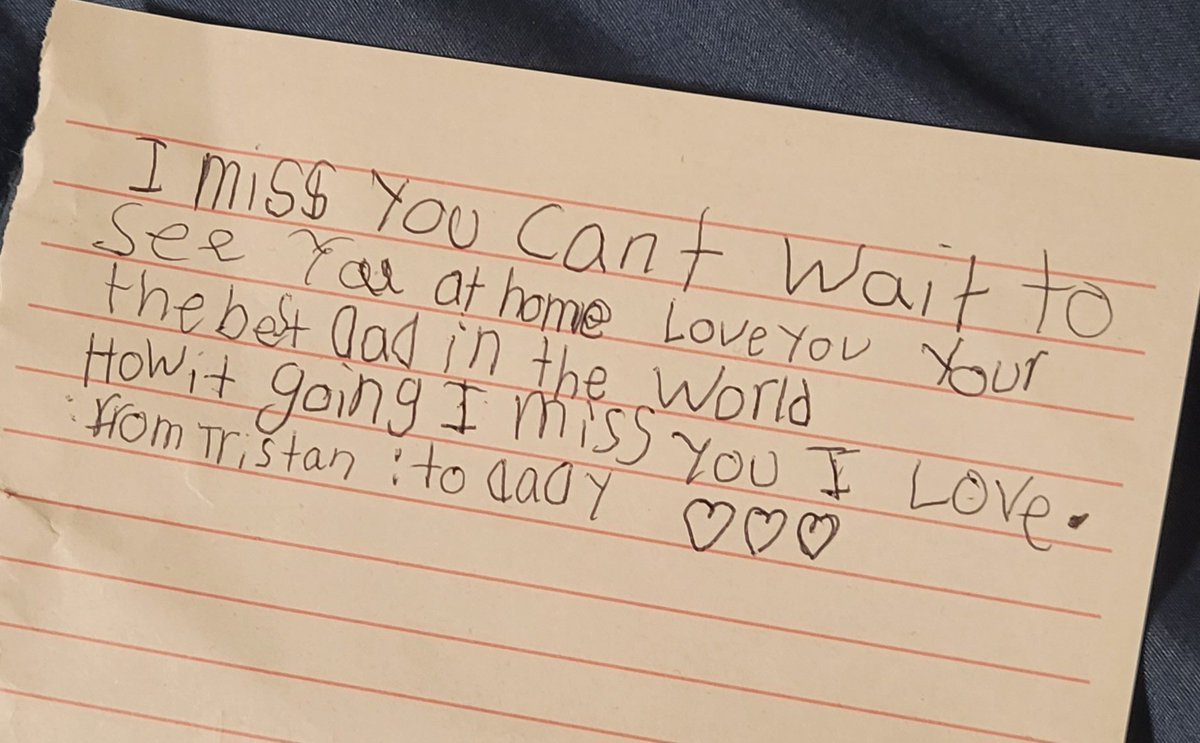 I miss You Cant Wait to
See You at home Love You Your
the best dad in the World
How it going I miss You I Love.
from Tristan : to dady ♡♡♡